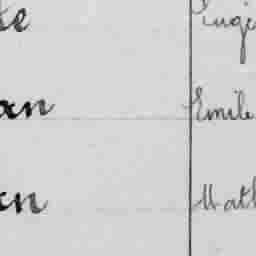 te Eugè
an Emile
an Math